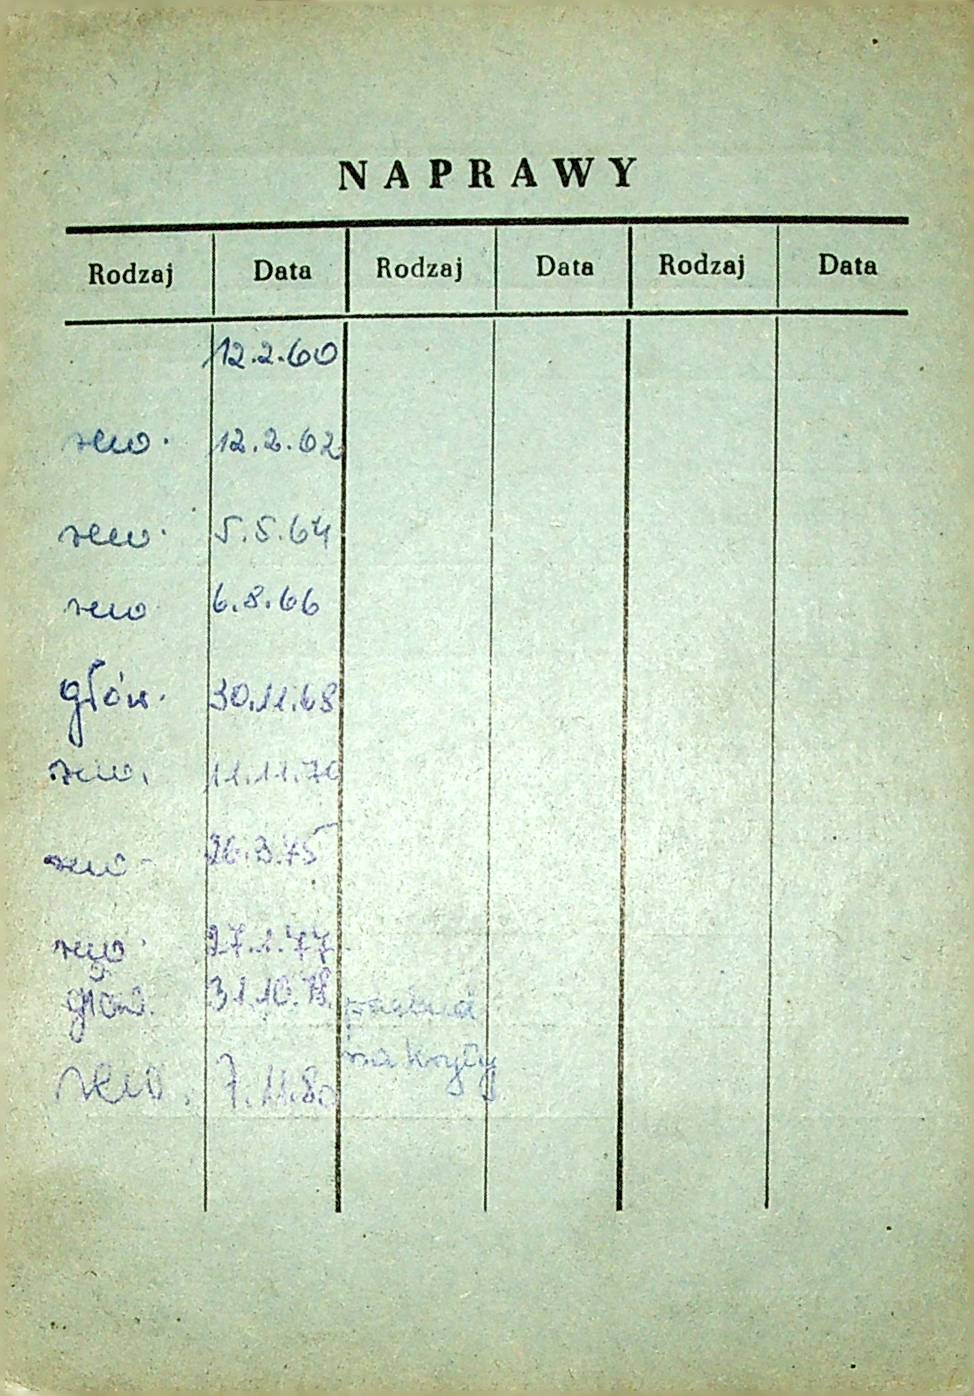 NAPRAWY
Rodzaj Data Rodzaj Data Rodzaj Data
12.2.60
rew. 12.2.62
rew. 5.5.64
rew 6.8.66
głów. 30.11.68
rew. 11.11.70
rew. 26.3.75
rew. 27.1.77
głów. 31.10.78
na kryty
rew. 7.11.80